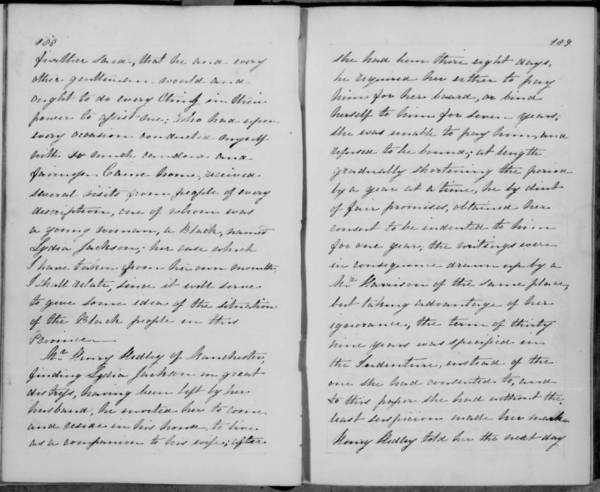 108
further said, that he and every
other gentlemen would and
ought to do every thing in their
power to assist one; who had upon
every occasion conducted myself
with so much candour and
fairness. Came home, received
several visits from people of every
description, one of whom was
a young woman, a Black, named
Lydia Jackson; her case which
I have taken from his own mouth,
I shall relate, since it will serve
to give some idea of the situation
of the Black people in this
Province.
Mr. Henry Hedley of Manchester,
finding Lydia Jackson in great
distress, having been left by her
husband, he invited her to come
and reside in his house to live
as a companion to his wife; after
109
she had been there eight days,
he required her either to pay
him for her board, or bind
herself to him for seven years;
she was unable to pay him, and
refused to be bound; at length
gradually shortening the period
by a year at a time, he by dint
of fair promises, obtained her
consent to be indented to him
for one year, the writings were
in consequence drawn up by a
Mr. Harrison of the same place,
but taking advantage of her
ignorance, the term of thirty
nine years was specified in
the Indenture, instead of the
one she had consented to, and
to this paper she had without the
least suspicion made her mark
Henry Hedley told her the next day